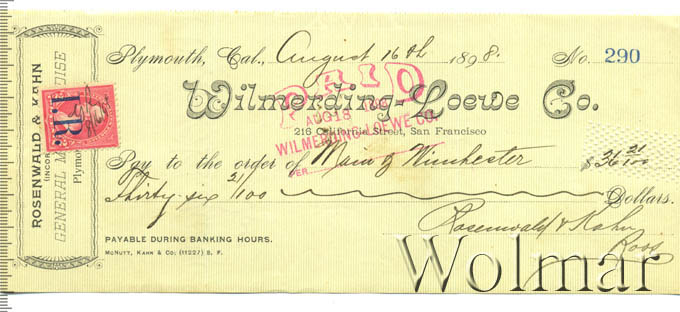 ROSENWALD & KAHN
(INCOR
GENERAL M DISE
Plymo
I.R.
Plymouth, Cal., August 16th 1898. No. 290
PAID
AUG 18
WILMERDING-LOEWE CO.
PER
Wilmerding-Loewe Co.
216 California Street, San Francisco
Pay to the order of Main & Winchester $36 21/100
Thirty-six 21/100 Dollars.
Rosenwald & Kahn
Roos
PAYABLE DURING BANKING HOURS.
McNutt, Kahn & Co; (11227) S. F.
Wolmar